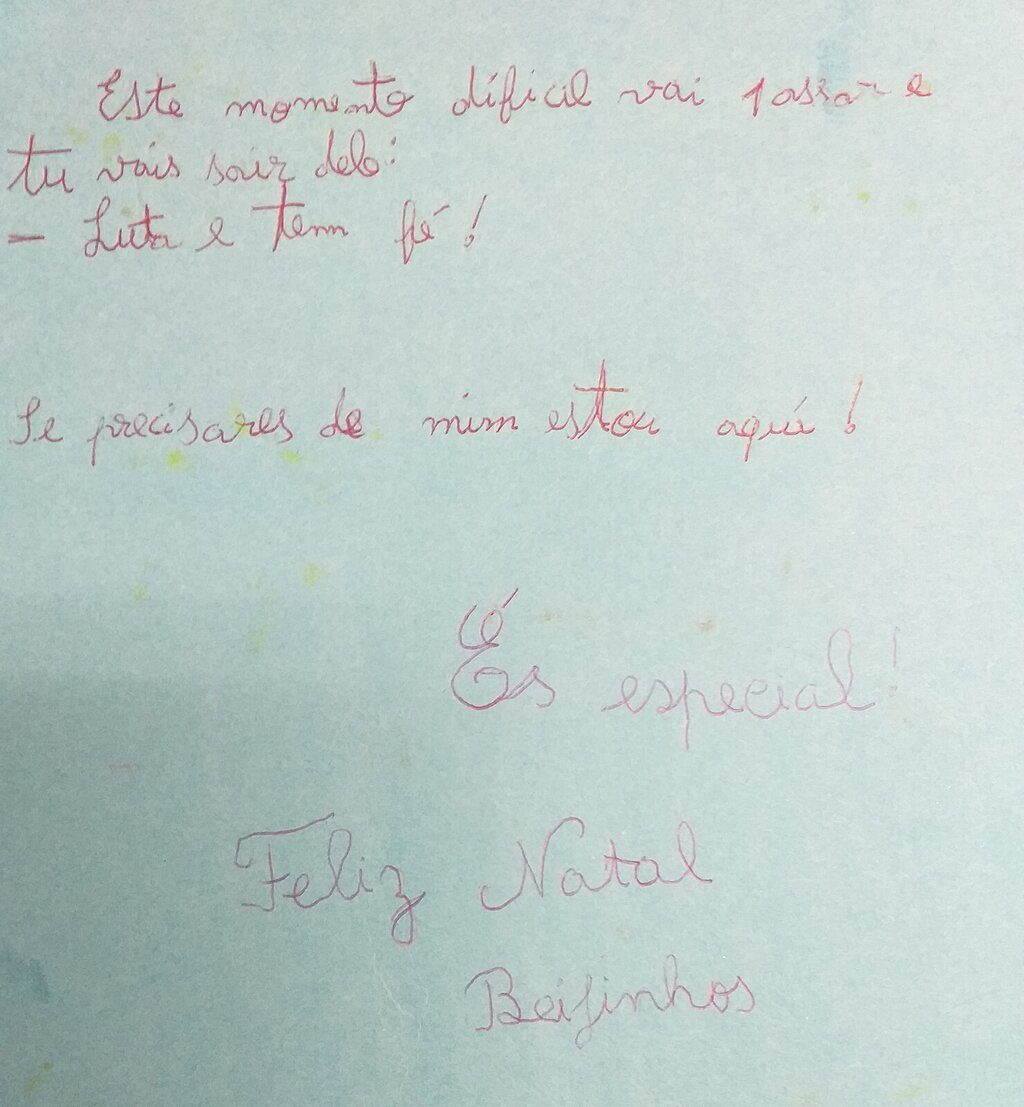 Este momento dificil vai passar e
tu vais sair dele:
- Luta e tem fé!
Se precisares de mim estou aqui!
És especial!
Feliz Natal
Beijinhos